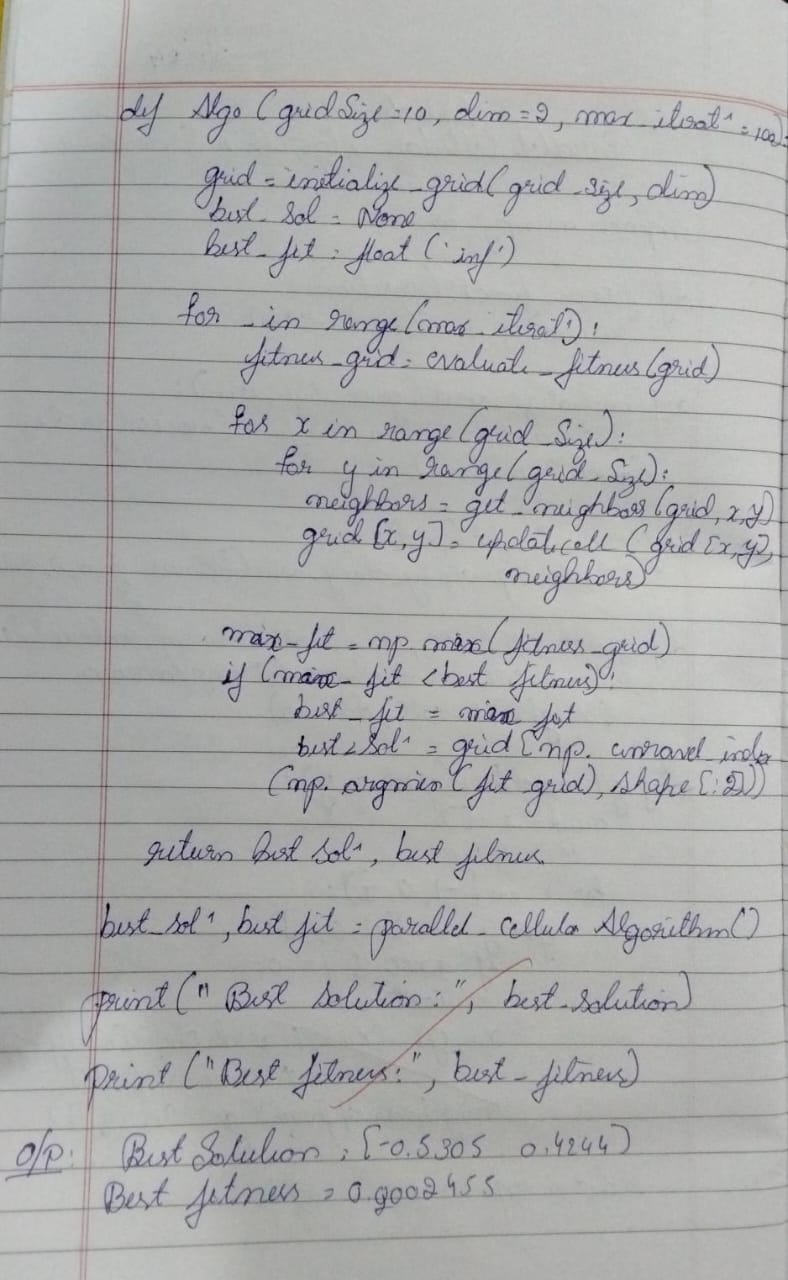 def Algo (grid Size = 10, dim = 2, max_iterat^ = 100):
grid = initialize_grid(grid_size, dim)
best_sol = None
best_fit = float ('inf')
for _ in range (max_iterat^):
fitness_grid = evaluate_fitness(grid)
for x in range (grid_Size):
for y in range (grid_Size):
neighbors = get_neighbors (grid, x, y)
grid [x, y] = update cell (grid [x, y],
neighbors)
max_fit = np. max (fitness_grid)
if (max_fit < best fitness):
best_fit = max fit
best_Sol^ = grid [np. unravel_index
(np. argmin (fit grid), shape [:2])]
return best sol^, best fitness
best_sol^, best fit = parallel_cellular Algorithm()
print (" Best Solution : ", best_solution)
print ("Best fitness: ", best_fitness)
O/P: Best Solution : [-0.5305 0.4244]
Best fitness = 0.9002455